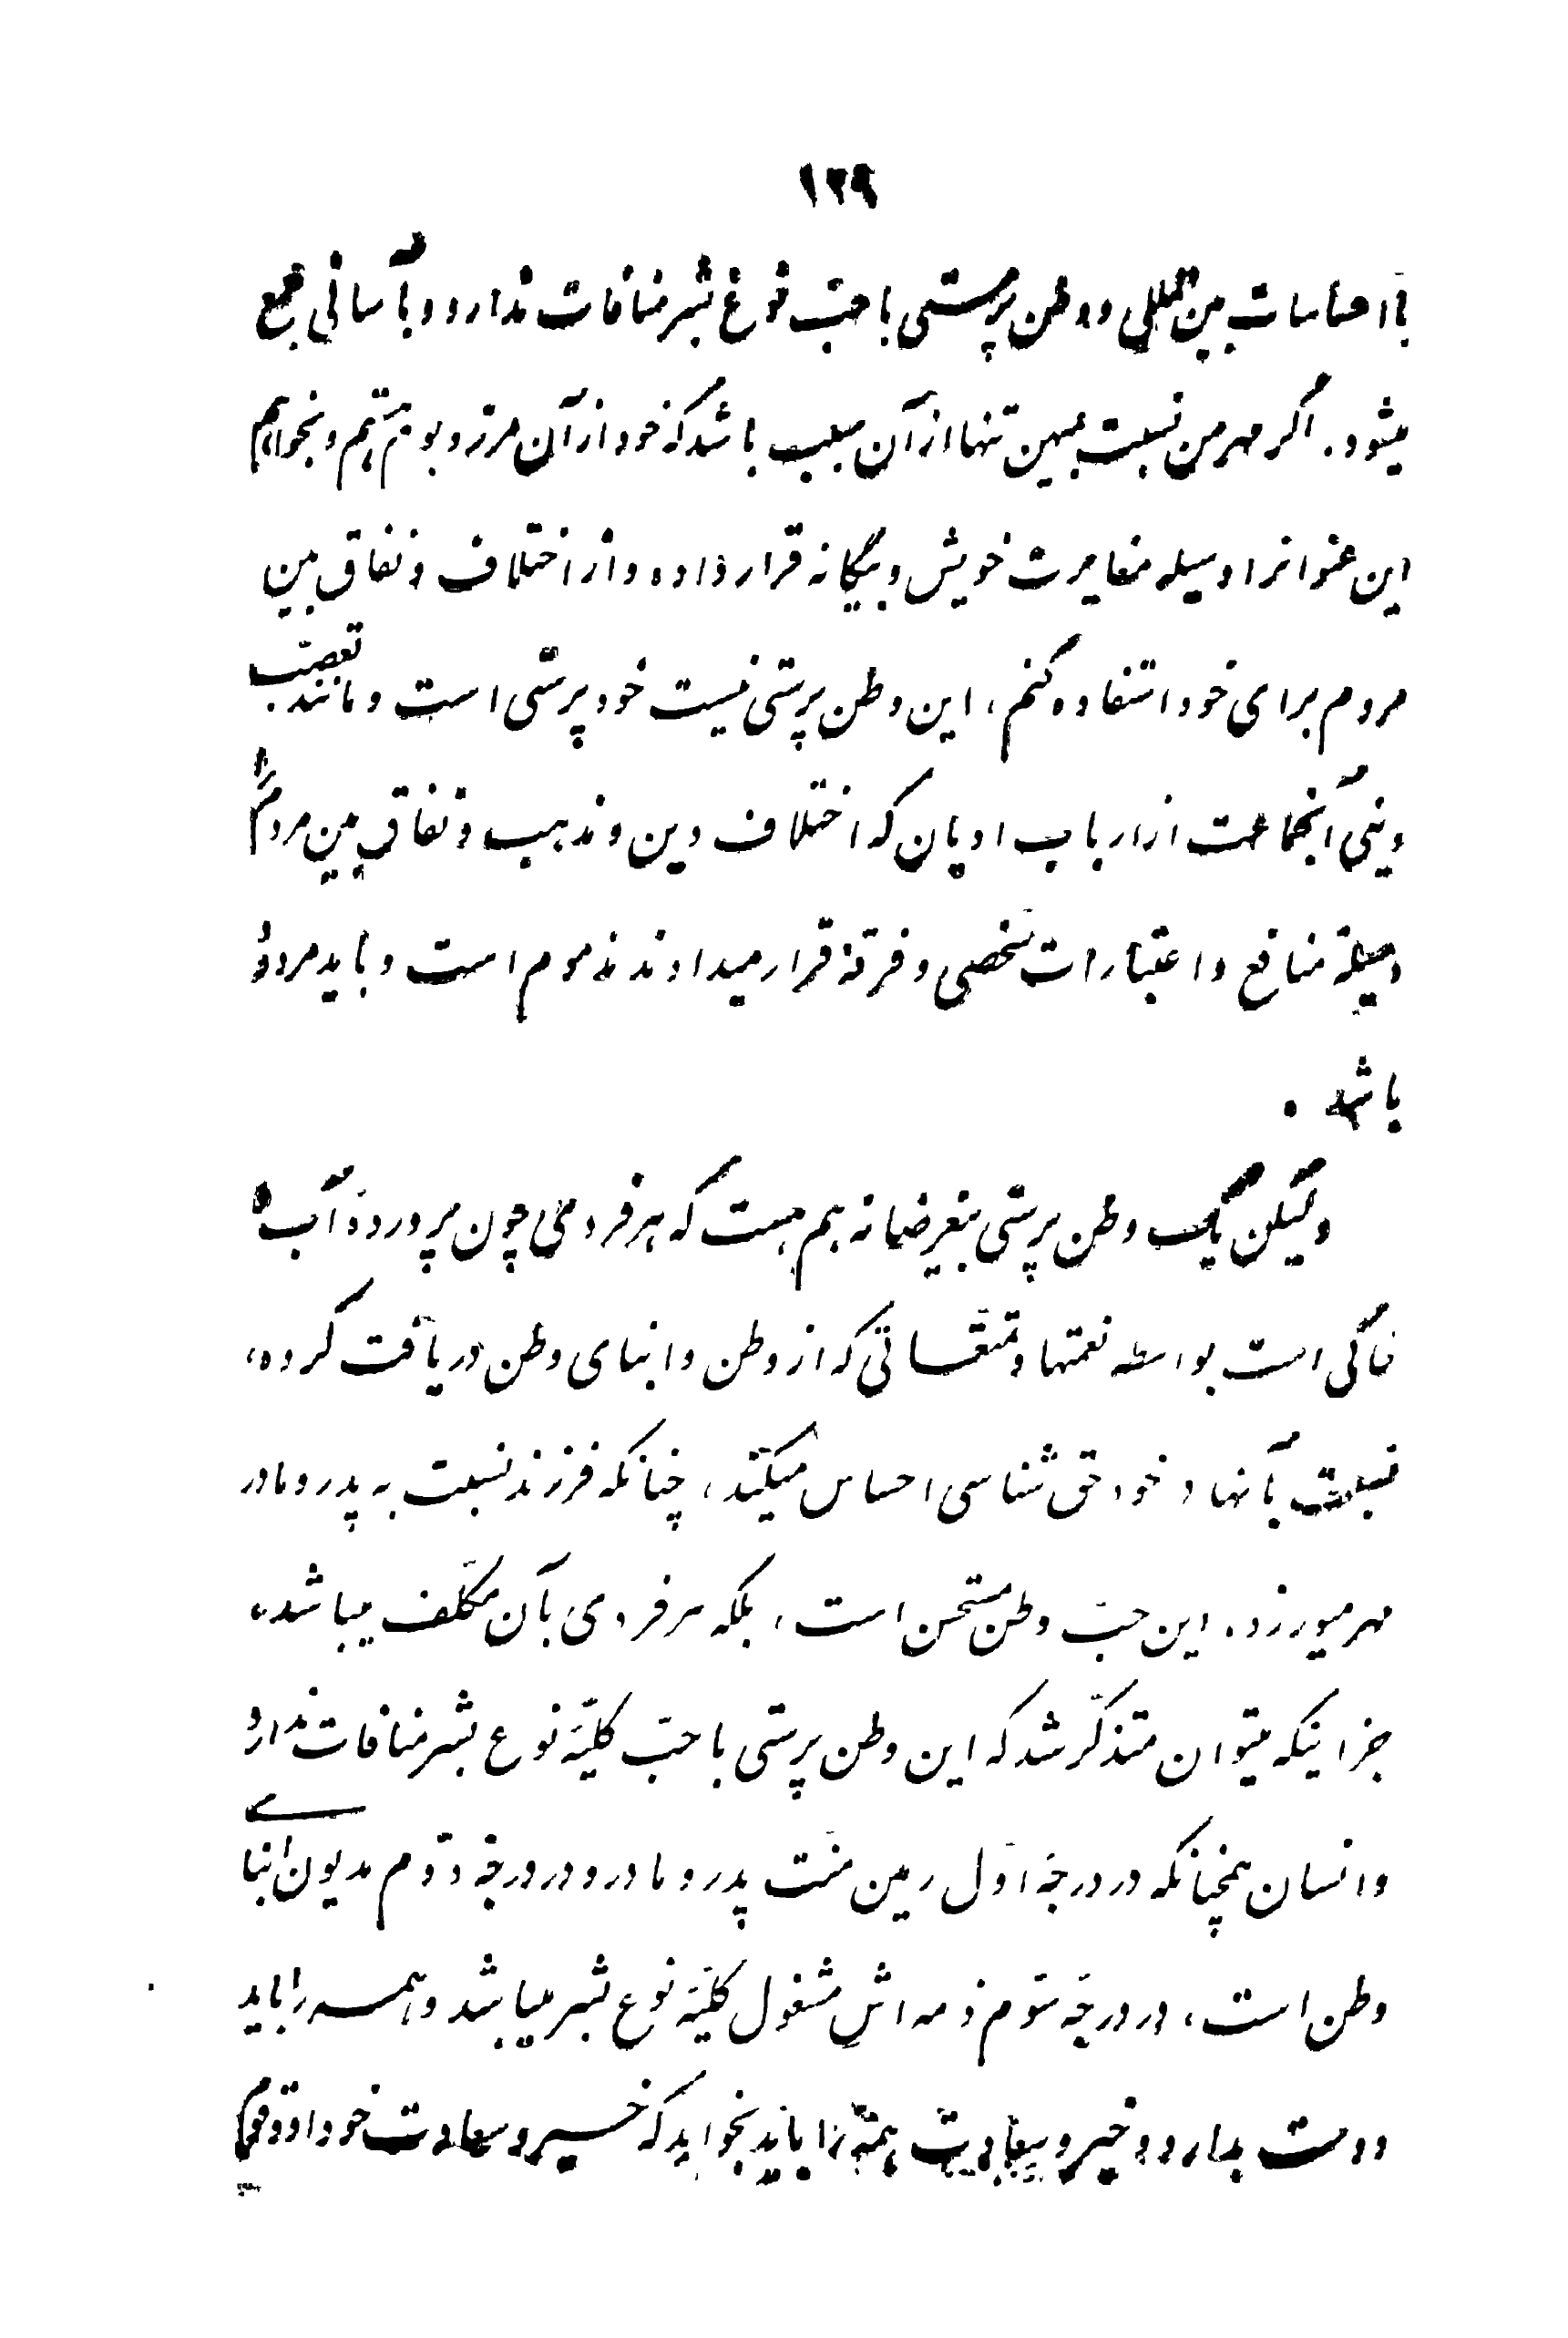 ۱۲۹
با احساسات بین‌المللی و وطن پرستی با حبّ نوع بشر منافات ندارد و بآسانی جمع
میشود. اگر مهر من نسبت بمیهن تنها از آن سبب باشد که خود از آن مرز و بوم هستم و بخواهم
این عنوانرا وسیله مغایرت خویش و بیگانه قرار داده و از اختلاف و نفاق بین
مردم برای خود استفاده کنم، این وطن پرستی نیست خود پرستی است و مانند تعصّب
دینی آنجماعت از ارباب ادیان که اختلاف دین و مذهب و نفاق بین مردم را
وسیلهٔ منافع و اعتبارات شخصی و فرقهٔ قرار میدادند مذموم است و باید مردود
باشد .
ولیکن یک وطن پرستی بیغرضانه هم هست که هر فردی چون پروردهٔ آب و
خاکی است بواسطه نعمتها و تمتّعاتی که از وطن و ابنای وطن دریافت کرده،
نسبت بآنها در خود حق شناسی احساس میکند، چنانکه فرزند نسبت به پدر و مادر
مهر میورزد. این حبّ وطن مستحسن است، بلکه هر فردی بآن مکلّف میباشد،
جز اینکه میتوان متذکّر شد که این وطن پرستی با حبّ کلیّهٔ نوع بشر منافات ندارد
و انسان همچنانکه در درجهٔ اوّل رهین منّت پدر و مادر و در درجهٔ دوّم مدیون ابنای
وطن است، در درجهٔ سوّم ذمه‌اش مشغول کلیّهٔ نوع بشر میباشد و همه را باید
دوست بدارد و خیر و سعادت همه را باید بخواهد که خیر و سعادت خود او و قوم